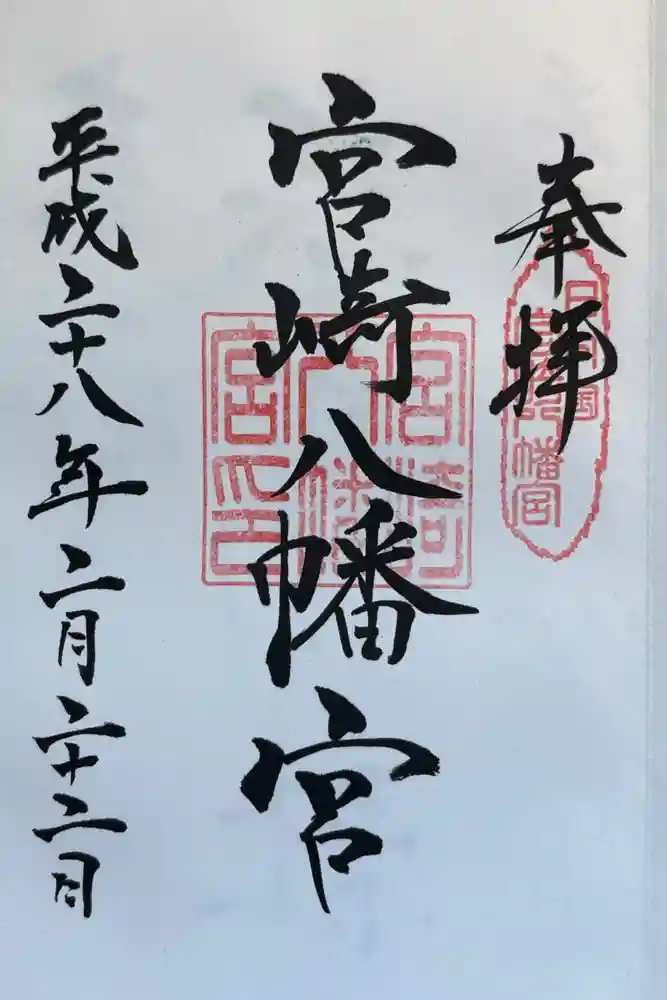 奉拝
日向国
宮崎八幡宮
宮崎八幡宮
宮崎
八幡
宮印
平成二十八年二月二十二日